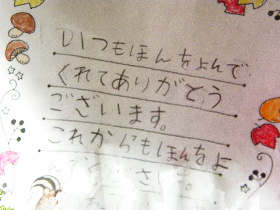 いつもほんをよんで
くれてありがとう
ございます。
これからもほんをよ